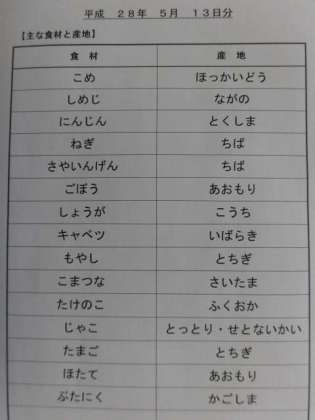 平成 28年 5月 13日分
【主な食材と産地】
食 材 産 地
こめ ほっかいどう
しめじ ながの
にんじん とくしま
ねぎ ちば
さやいんげん ちば
ごぼう あおもり
しょうが こうち
キャベツ いばらき
もやし とちぎ
こまつな さいたま
たけのこ ふくおか
じゃこ とっとり・せとないかい
たまご とちぎ
ほたて あおもり
ぶたにく かごしま